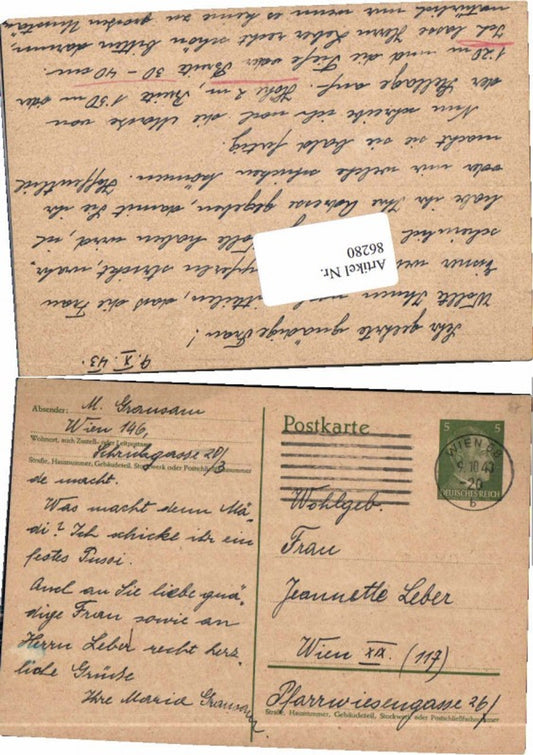 9. X. 43.
Sehr geehrte gnädige Frau!
Wollte Ihnen mitteilen, dass die Frau
strickt, wahr-
scheinlich Wolle haben wird, ich
habe ihr Ihre Adresse gegeben, damit Sie ihr
oder mir welche schicken können. Hoffentlich
macht sie bald fertig.
Nun schreibe ich noch die Masse von
der Stellage auf. Höhe 2 m, Breite 1.50 m oder
1.20 m und die Tiefe oder Breite 30 - 40 cm.
Ich lasse Herrn Leber recht schön bitten darum,
natürlich nur wenn es keine zu grossen Umstän-
Artikel Nr.
86280
Absender: M. Gransam
Wien 146,
Wohnort, auch Zustell- oder Leitpostamt
28/3
Straße, Hausnummer, Gebäudeteil, Stockwerk oder Postschließfachnummer
de macht.
Was macht denn Mä-
di? Ich schicke ihr ein
festes Pussi.
Auch an Sie liebe gnä-
dige Frau sowie an
Herrn Leber recht herz-
liche Grüße
Ihre Maria Gransam
Postkarte
5 5
WIEN
9.10.43
-20
b
DEUTSCHES REICH
Wohlgeb.
Frau
Jeannette Leber
Wien XX. (117)
Pfarrwiesengasse 26/
Straße, Hausnummer, Gebäudeteil, Stockwerk oder Postschließfachnummer